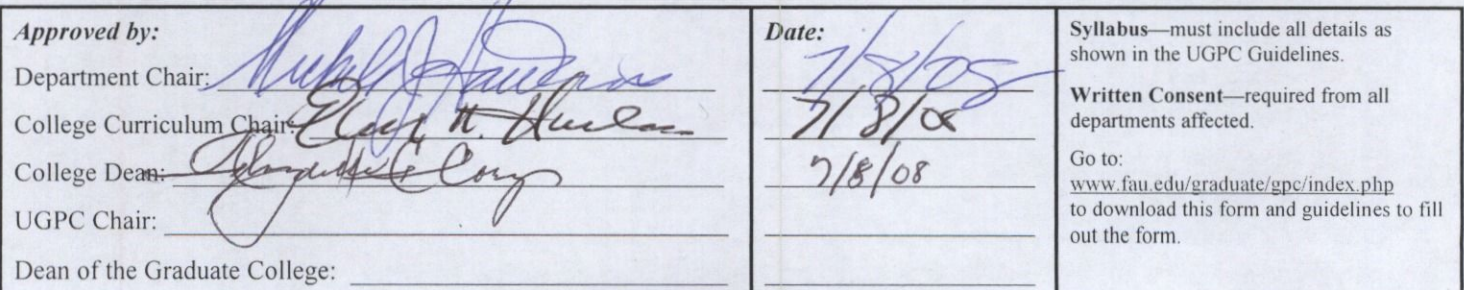 Approved by:
Department Chair:
College Curriculum Chair:
College Dean:
UGPC Chair:
Dean of the Graduate College:
Date:
7/8/08
7/8/08
7/8/08
Syllabus—must include all details as
shown in the UGPC Guidelines.
Written Consent—required from all
departments affected.
Go to:
www.fau.edu/graduate/gpc/index.php
to download this form and guidelines to fill
out the form.